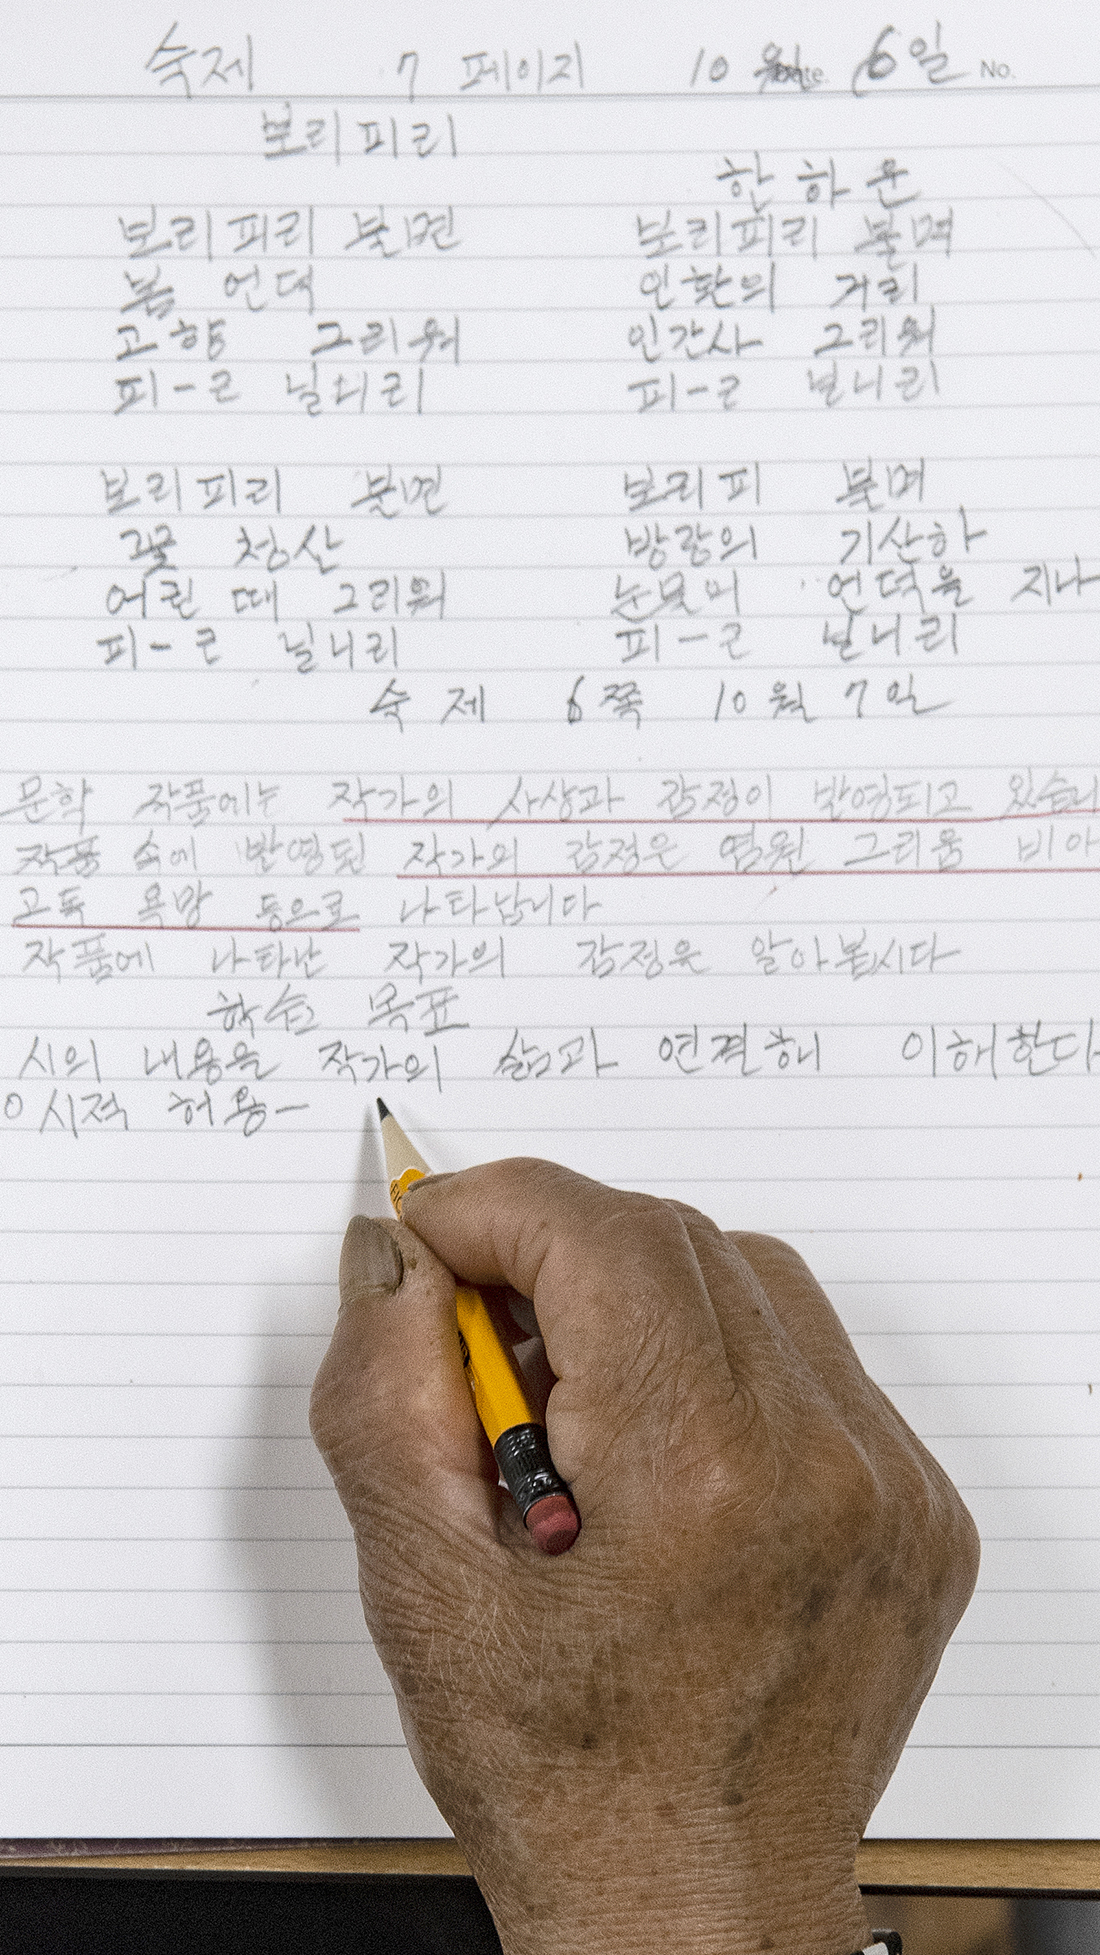 숙제 7 페이지 10 월 6일 No.
보리피리
한하운
보리피리 불면
봄 언덕
고향 그리워
피-ㄹ 닐니리
보리피리 불면
꽃 청산
어린 때 그리워
피-ㄹ 닐니리
보리피리 불며
인환의 거리
인간사 그리워
피-ㄹ 닐니리
보리피 불며
방랑의 기산하
눈물의 언덕을 지나
피-ㄹ 닐니리
숙제 6쪽 10월 7일
문학 작품에는 작가의 사상과 감정이 반영되고 있습니
작품 속에 반영된 작가의 감정은 염원 그리움 비아
고독 욕망 등으로 나타납니다
작품에 나타난 작가의 감정을 알아봅시다
학습 목표
시의 내용을 작가의 삶과 연결해 이해한다
0 시적 허용-